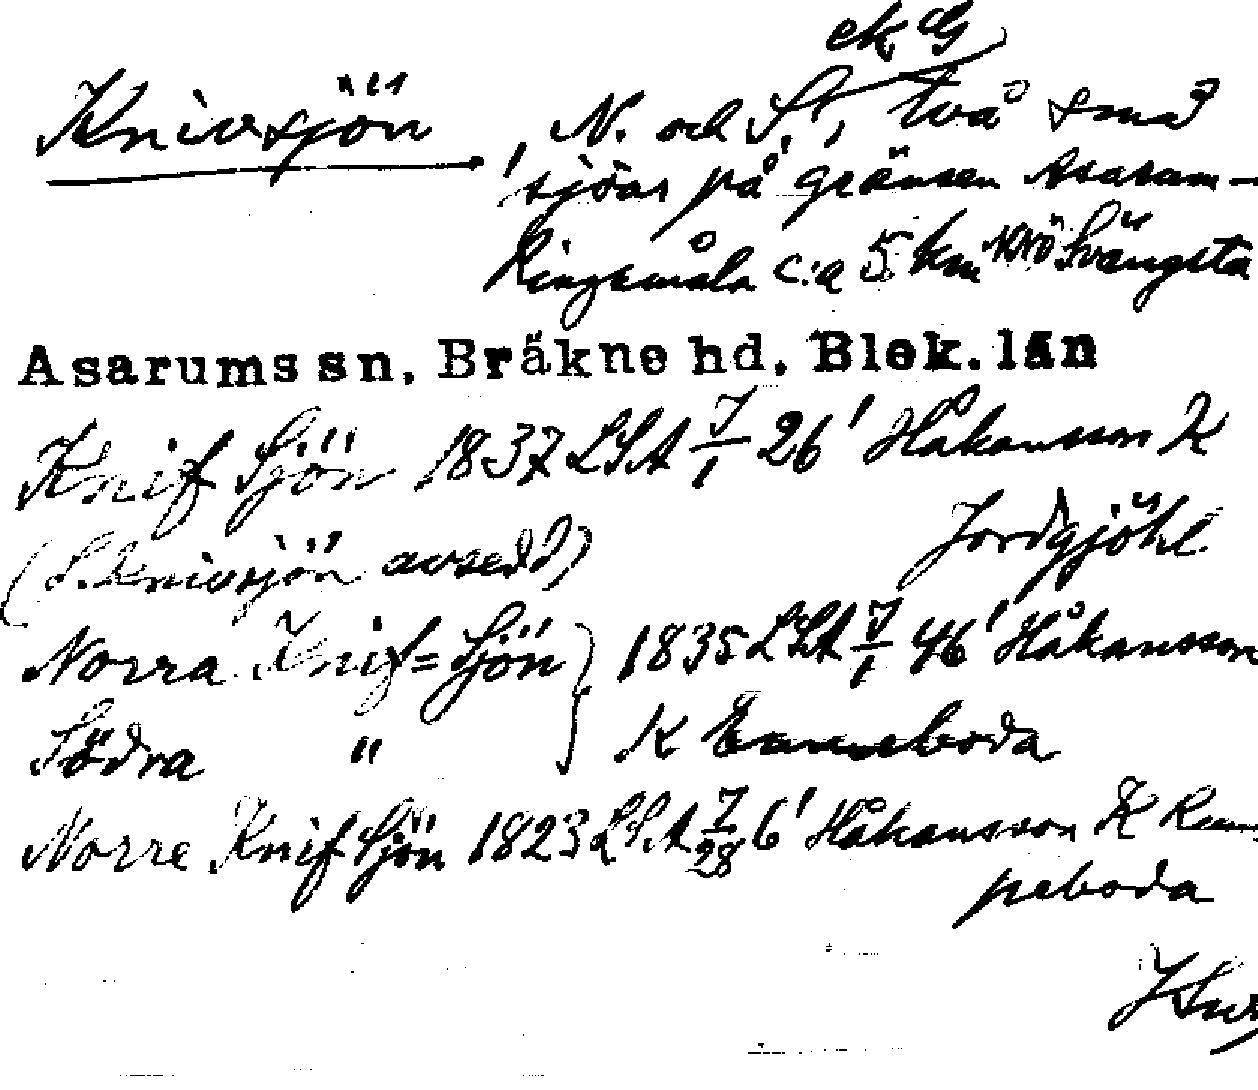 ek G
Knivsjön, N. och S., två små
sjöar på gränsen Asarum-
Ringamåla c:a 5 km NNÖ Svängsta
Asarums sn. Bräkne hd. Blek. län
Knif Sjön 1837 LSA J/1 26' Håkansson K
Jordgjöhl
(S. Knivsjön avsedd)
Norra Knif=Sjön } 1835 LSA J/1 46' Håkansson
Södra " } K Enneboda
Norre Knif Sjön 1823 LSA J/28 6' Håkansson K Rum
peboda